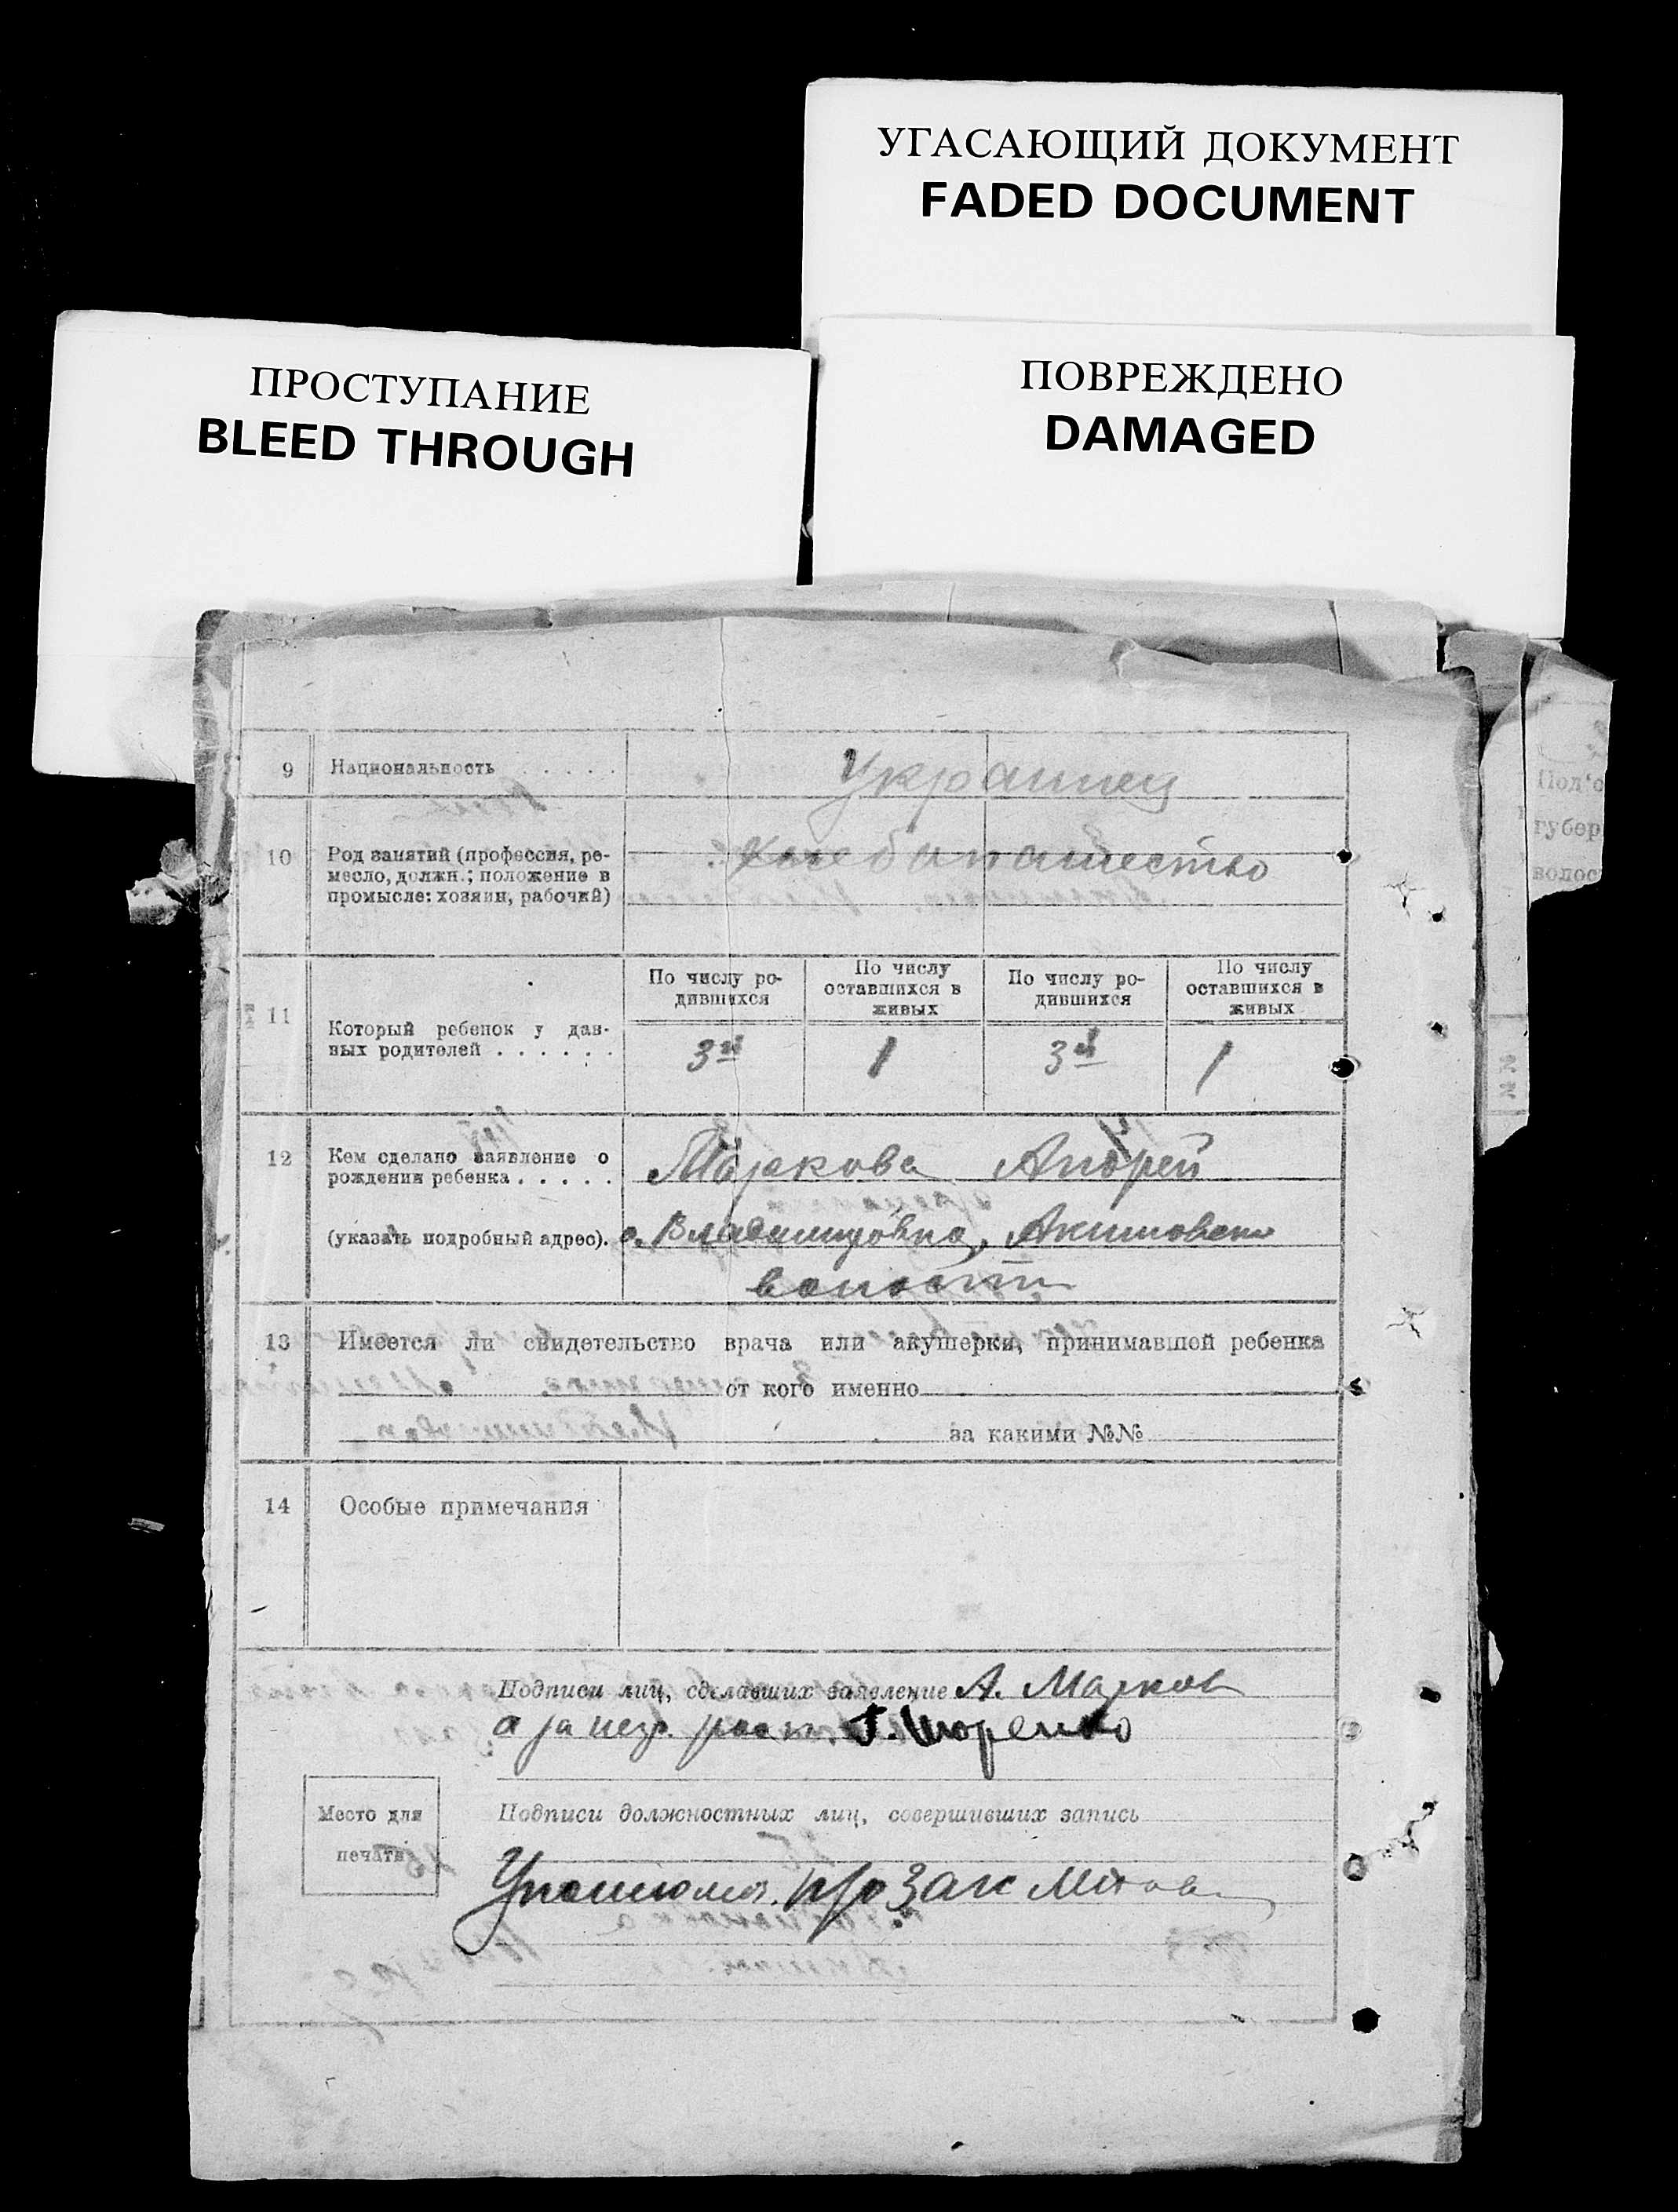 УГАСАЮЩИЙ ДОКУМЕНТ
FADED DOCUMENT
ПРОСТУПАНИЕ
BLEED THROUGH
ПОВРЕЖДЕНО
DAMAGED
9 Национальность . . . . . Украинец
10 Род занятий (профессия, ре-
месло, должн.; положение в
промысле: хозяин, рабочий)
Хлебопашество
11 Который ребенок у дан-
ных родителей . . . . . .
По числу ро-
дившихся
По числу
оставшихся в
живых
По числу ро-
дившихся
По числу
оставшихся в
живых
3й 1 3й 1
12 Кем сделано заявление о
рождении ребенка . . . . .
(указать подробный адрес).
Андрей
с. Владимировка, Акимовской
волости
13 Имеется ли свидетельство врача или акушерки, принимавшей ребенка
от кого именно
за какими №№
14 Особые примечания
Подписи лиц, сделавших заявление А. Марков
а за негр.
Место для
печати
Подписи должностных лиц, совершивших запись
Под'о
губер
волос